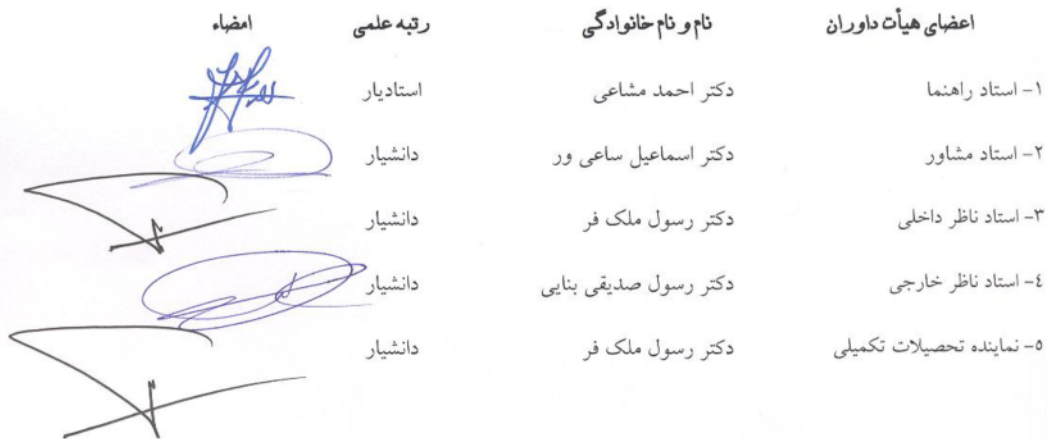 اعضای هیأت داوران نام و نام خانوادگی رتبه علمی امضاء
۱- استاد راهنما دکتر احمد مشاعی استادیار
۲- استاد مشاور دکتر اسماعیل ساعی ور دانشیار
۳- استاد ناظر داخلی دکتر رسول ملک فر دانشیار
٤- استاد ناظر خارجی دکتر رسول صدیقی بنایی دانشیار
٥- نماینده تحصیلات تکمیلی دکتر رسول ملک فر دانشیار